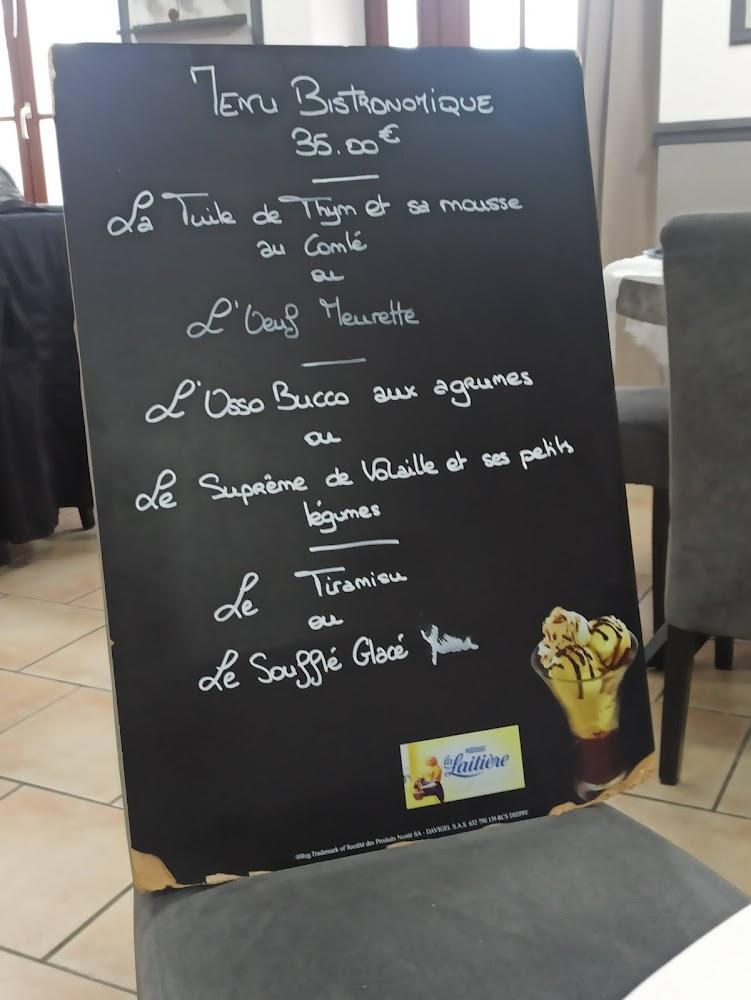 Menu Bistronomique
35.00€
La Tuile de Thym et sa mousse
au Comté
ou
L'Oeuf Meurette
L'Osso Bucco aux agrumes
ou
Le Suprême de Volaille et ses petits
légumes
Le Tiramisu
ou
Le Soufflé Glacé
Nestlé
la Laitière
®Reg. Trademark of Société des Produits Nestlé SA - DAVIGEL S.A.S. 632 750 139 RCS DIEPPE